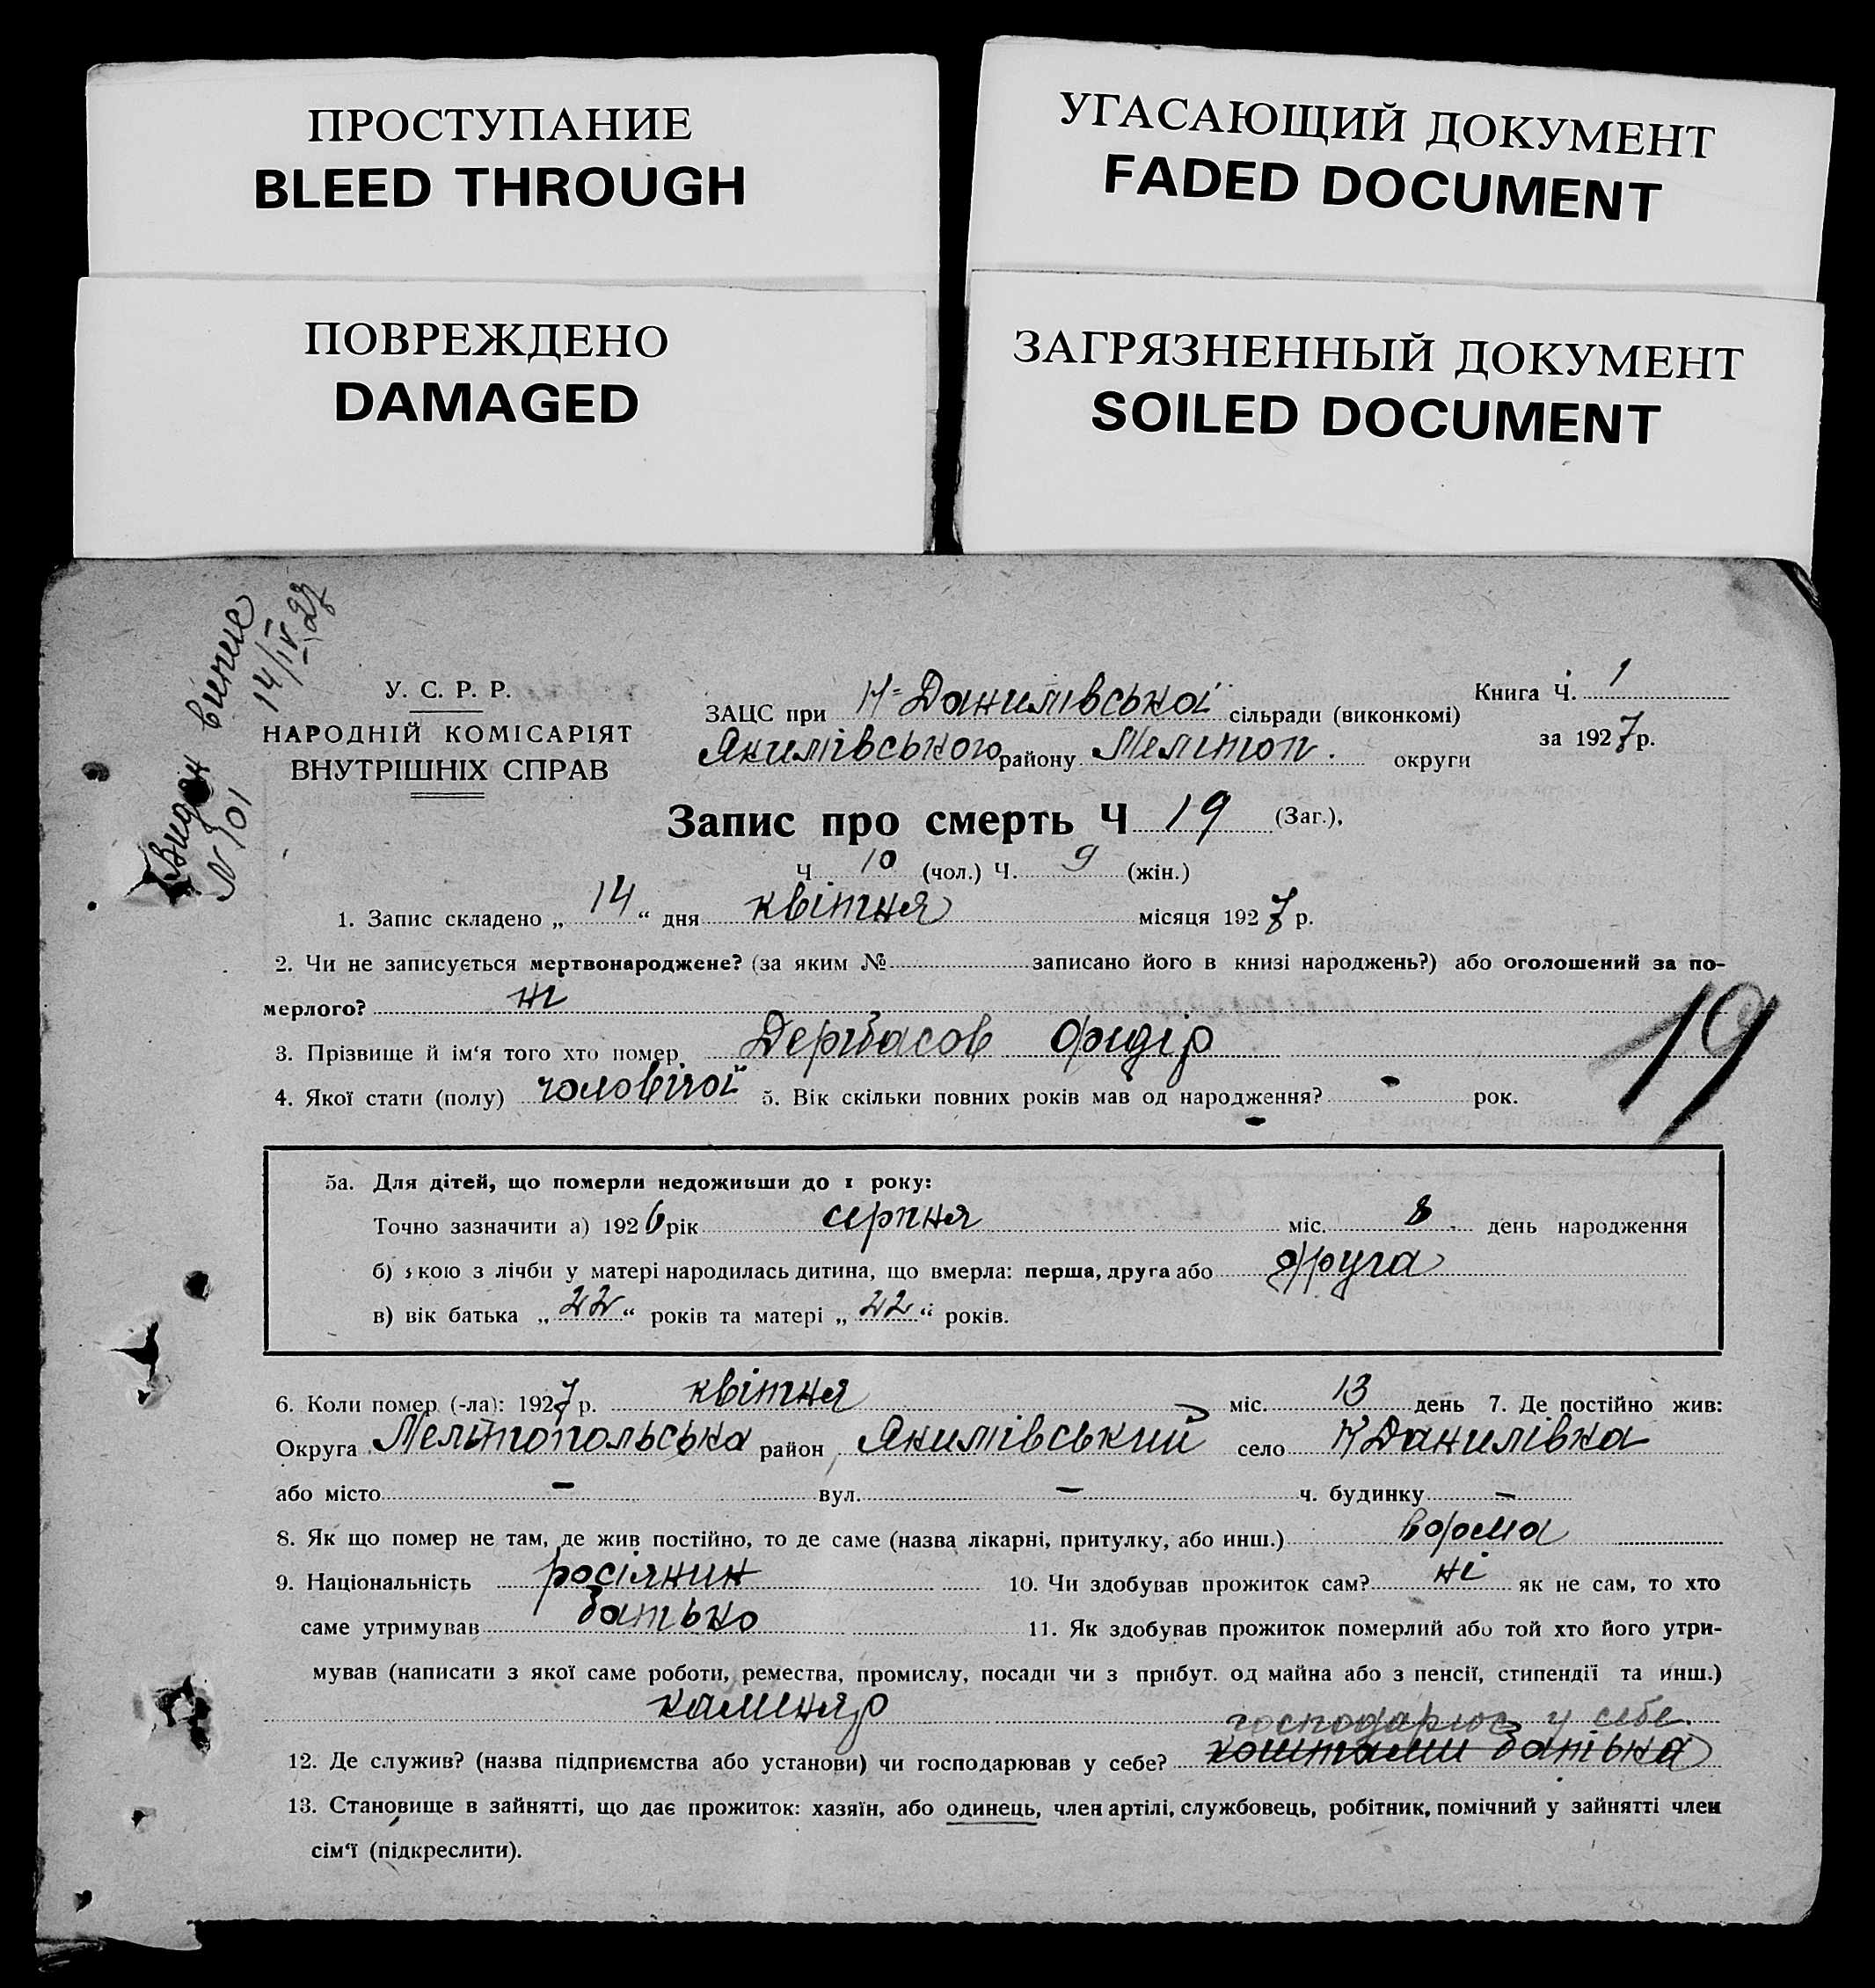 ПРОСТУПАНИЕ
BLEED THROUGH
УГАСАЮЩИЙ ДОКУМЕНТ
FADED DOCUMENT
ПОВРЕЖДЕНО
DAMAGED
ЗАГРЯЗНЕННЫЙ ДОКУМЕНТ
SOILED DOCUMENT
Видан випис
14/IV-27
N 101
У. С. Р. Р.
НАРОДНІЙ КОМІСАРІЯТ
ВНУТРІШНІХ СПРАВ
ЗАЦС при Н-Данилівської сільради (виконкомі)
Якимівського району Мелитоп. округи
Книга Ч. 1
за 1927 р.
Запис про смерть Ч 19 (Заг.),
Ч 10 (чол.) Ч. 9 (жін.)
1. Запис складено „ 14 “ дня квітня місяця 1927 р.
2. Чи не записується мертвонароджене? (за яким № записано його в книзі народжень?) або оголошений за по-
мерлого? ні
19
3. Прізвище й ім‘я того хто помер Дербасов Фидір
4. Якої стати (полу) чоловічої 5. Вік скільки повних років мав од народження? - рок.
5а. Для дітей, що померли недоживши до 1 року:
Точно зазначити а) 1926 рік серпня міс. 8 день народження
б) якою з лічби у матері народилась дитина, що вмерла: перша, друга або друга
в) вік батька „ 22 “ років та матері „ 22 “ років.
6. Коли помер (-ла): 1927 р. квітня міс. 13 день 7. Де постійно жив:
Округа Мелітопольська район Якимівський село Н Данилівка
або місто - вул. - ч. будинку -
8. Як що помер не там, де жив постійно, то де саме (назва лікарні, притулку, або инш.) вдома
9. Національність росіянин 10. Чи здобував прожиток сам? ні як не сам, то хто
саме утримував батько 11. Як здобував прожиток померлий або той хто його утри-
мував (написати з якої саме роботи, ремества, промислу, посади чи з прибут. од майна або з пенсії, стипендії та инш.)
каминяр
господарює у себе
12. Де служив? (назва підприємства або установи) чи господарював у себе? коштами батька
13. Становище в зайнятті, що дає прожиток: хазяїн, або одинець, член артілі, службовець, робітник, помічний у зайнятті член
сім‘ї (підкреслити).